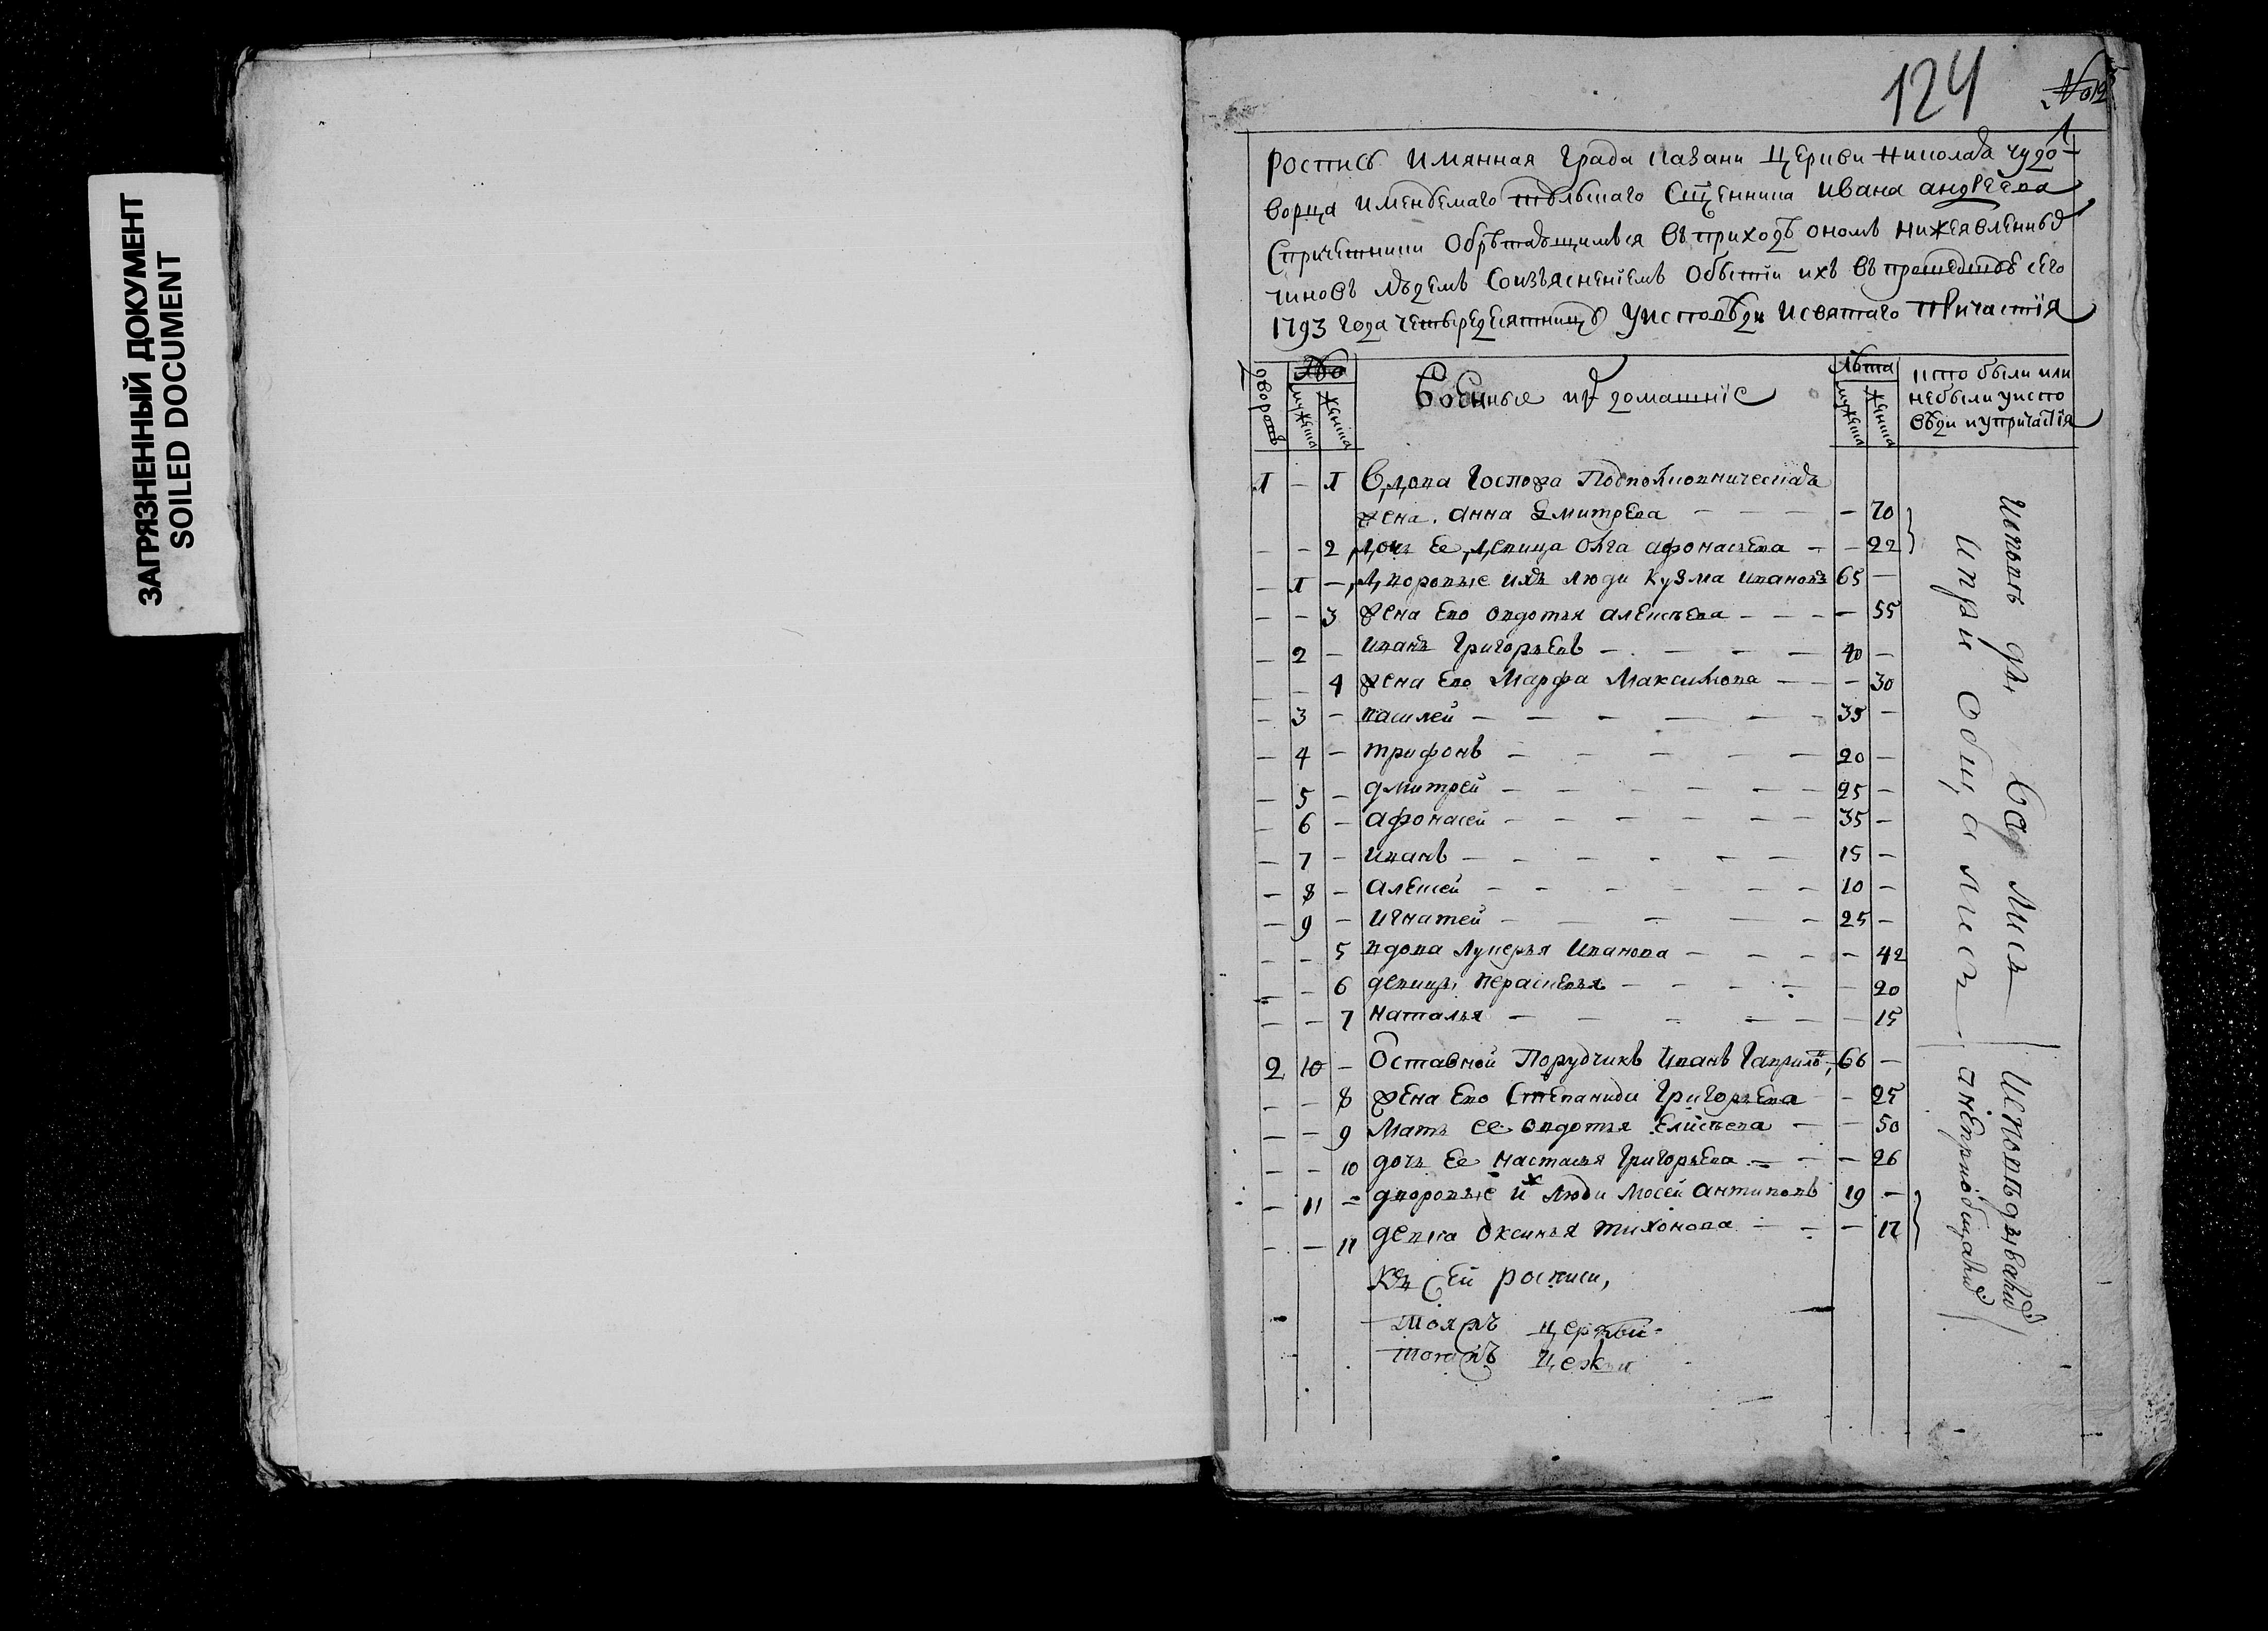 ЗАГРЯЗНЕННЫЙ ДОКУМЕНТ
SOILED DOCUMENT
124
№ 12
1
Роспись имянная града казани церкви николая чудо-
ворца именуемаго тульскаго сщенника ивана андреева
спричетники обретающимся въ приходъ ономъ нижеявленныхъ
чиновъ людемъ соизъяснениемъ обытіи ихъ въ сего
1793 года четыредесятницу уисповѣди исвятаго причастїя
дворовъ
мужеска
женска
Военные ихъ домашнїе
лѣта
мужеска
женска
кто были или
небыли уиспо
вѣди иупричастїя
1 – 1 Вдова Госпожа Подполковническая
жена. анна Дмитрева – – 70
– – 2 дочь ее девица Олга афонасьева – – 22
– 1 – Дворовые ихъ люди Кузма ивановъ 65 –
– – 3 жена ево овдотья алексѣева – – 55
– 2 – иванъ григорьевъ – 40 –
– – 4 жена ево Марфа Максимова – – 30
– 3 – василей – 35 –
– 4 – трифонъ – 20 –
– 5 – дмитрей – 25 –
– 6 – афонасей – 35 –
– 7 – иванъ – 15 –
– 8 – алексей – 10 –
– 9 – игнатей – 25 –
– – 5 вдова лукерья иванова – – 42
– – 6 девицы парасковья – – 20
– – 7 наталья – – 15
исповѣдывались
и приобщались
2 10 – Оставной Порудчикъ иванъ Гаврило, 66 –
– – 8 жена ево Степанида григорьева – 25
– – 9 мать ее овдотья елисѣева – – 50
– – 10 дочь ее настасья григорьева – – 26
– 11 – дворовые их люди мосей антиповъ 19 –
– – 11 девка оксинья тихонова – – 17
Къ сей росписи,
церкви